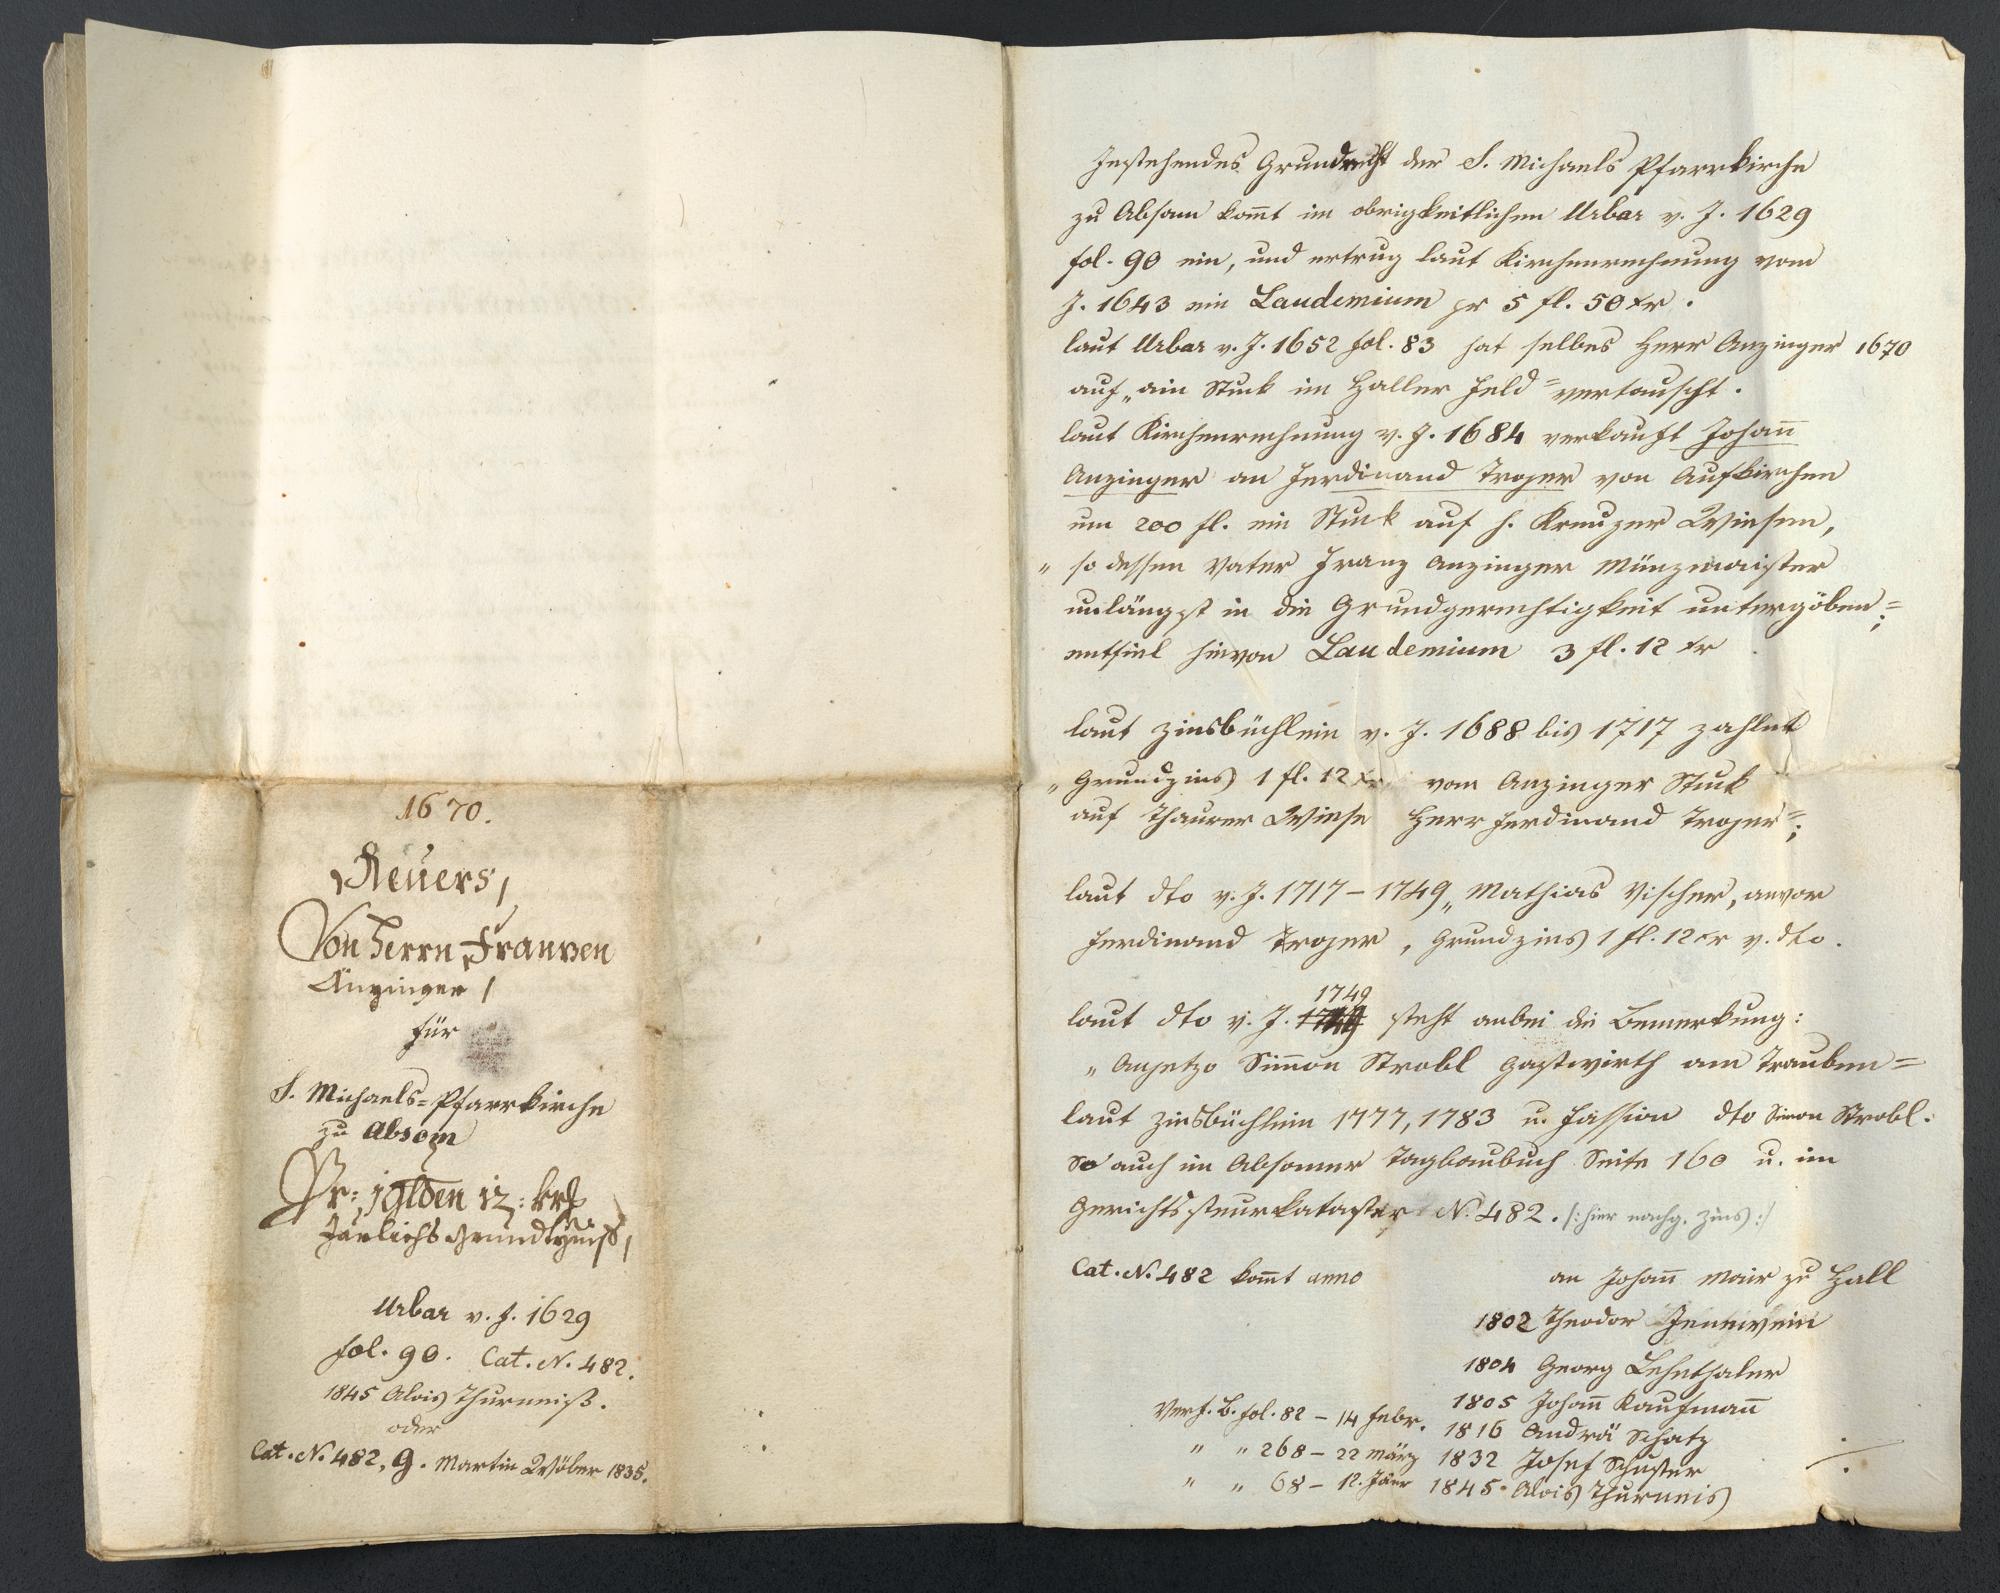 1670.
Reuers,
Von Herrn Franzen
Änzinger /
für
S. Michaels-Pfarrkirche
zu Absam
Pr: 1 glden 12: krz
Järlichs Grundtzinß,
Urbar v. J. 1629
fol. 90. Cat. N. 482.
1845 Alois Thurneiß.
oder
Cat. N. 482, 9. Martin Wöber 1835.
Jnstehendes Grundrecht der S. Michaels Pfarrkirche
zu Absam kom̄t im obrigkeitlichen Urbar v. J. 1629
fol. 90 ein, und ertrug laut Kirchenrechnung vom
J. 1643 ein Laudemium pr 5 fl. 50 xr.
laut Urbar v. J. 1652 fol. 83 hat selbes Herr Anzinger 1670
auf „ain Stuck im Haller Feld" vertauscht.
laut Kirchenrechnung v. J. 1684 verkauft Johan̄
Anzinger an Ferdinand Trojer von Aufkirchen
um 200 fl. ein Stuck auf h. Kreuzer Wiesen,
„ so dessen Vater Franz Anzinger Münzmaister
unlängst in die Grundgerechtigkeit untergöben";
entfiel hievon Laudemium 3 fl. 12 xr
laut Zinsbüchlein v. J. 1688 bis 1717 zahlet
„ Grundzins 1 fl. 12 xr vom Anzinger Stuck
auf Thaurer Wiese Herr Ferdinand Trojer";
laut dto v. J. 1717 – 1749 „ Mathias Vischer, anvor
Ferdinand Trojer, Grundzins 1 fl. 12 xr v. dto.
1749
laut dto v. J. steht anbei die Bemerkung:
„ Anjetzo Sim̄on Strobl Gastwirth am Trauben"
laut Zinsbüchlein 1777, 1783 u. Fassion dto Simon Strobl.
So auch im Absamer Tagbaubuch Seite 160 u. im
Gerichtssteurkataster N. 482. /: hier nachg. Zins :/
Cat. N. 482 kom̄t anno an Johan̄ Mair zu Hall
1802 Theodor Jennewein
1804 Georg Lehnthaler
1805 Johan̄ Kaufman̄
Verf. B. fol. 82 – 14 Febr. 1816 Andrä Schatz
" " 268 – 22 März 1832 Josef Schuster
" " 68 – 12. Jäner 1845 Alois Thurneis